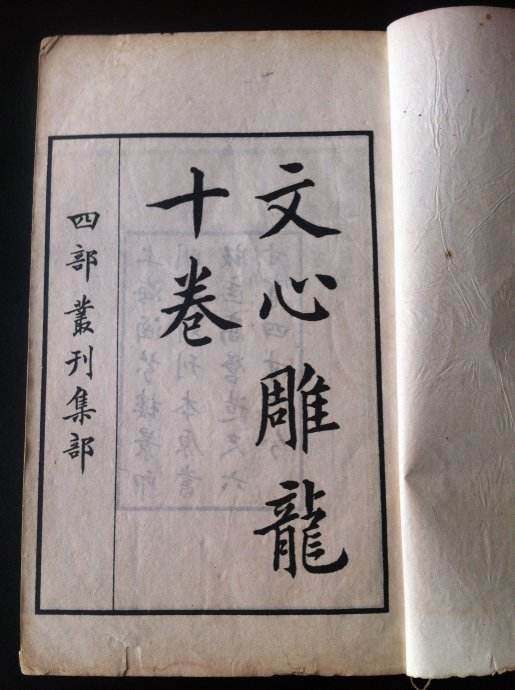 文心雕龍
十卷
四部叢刊集部